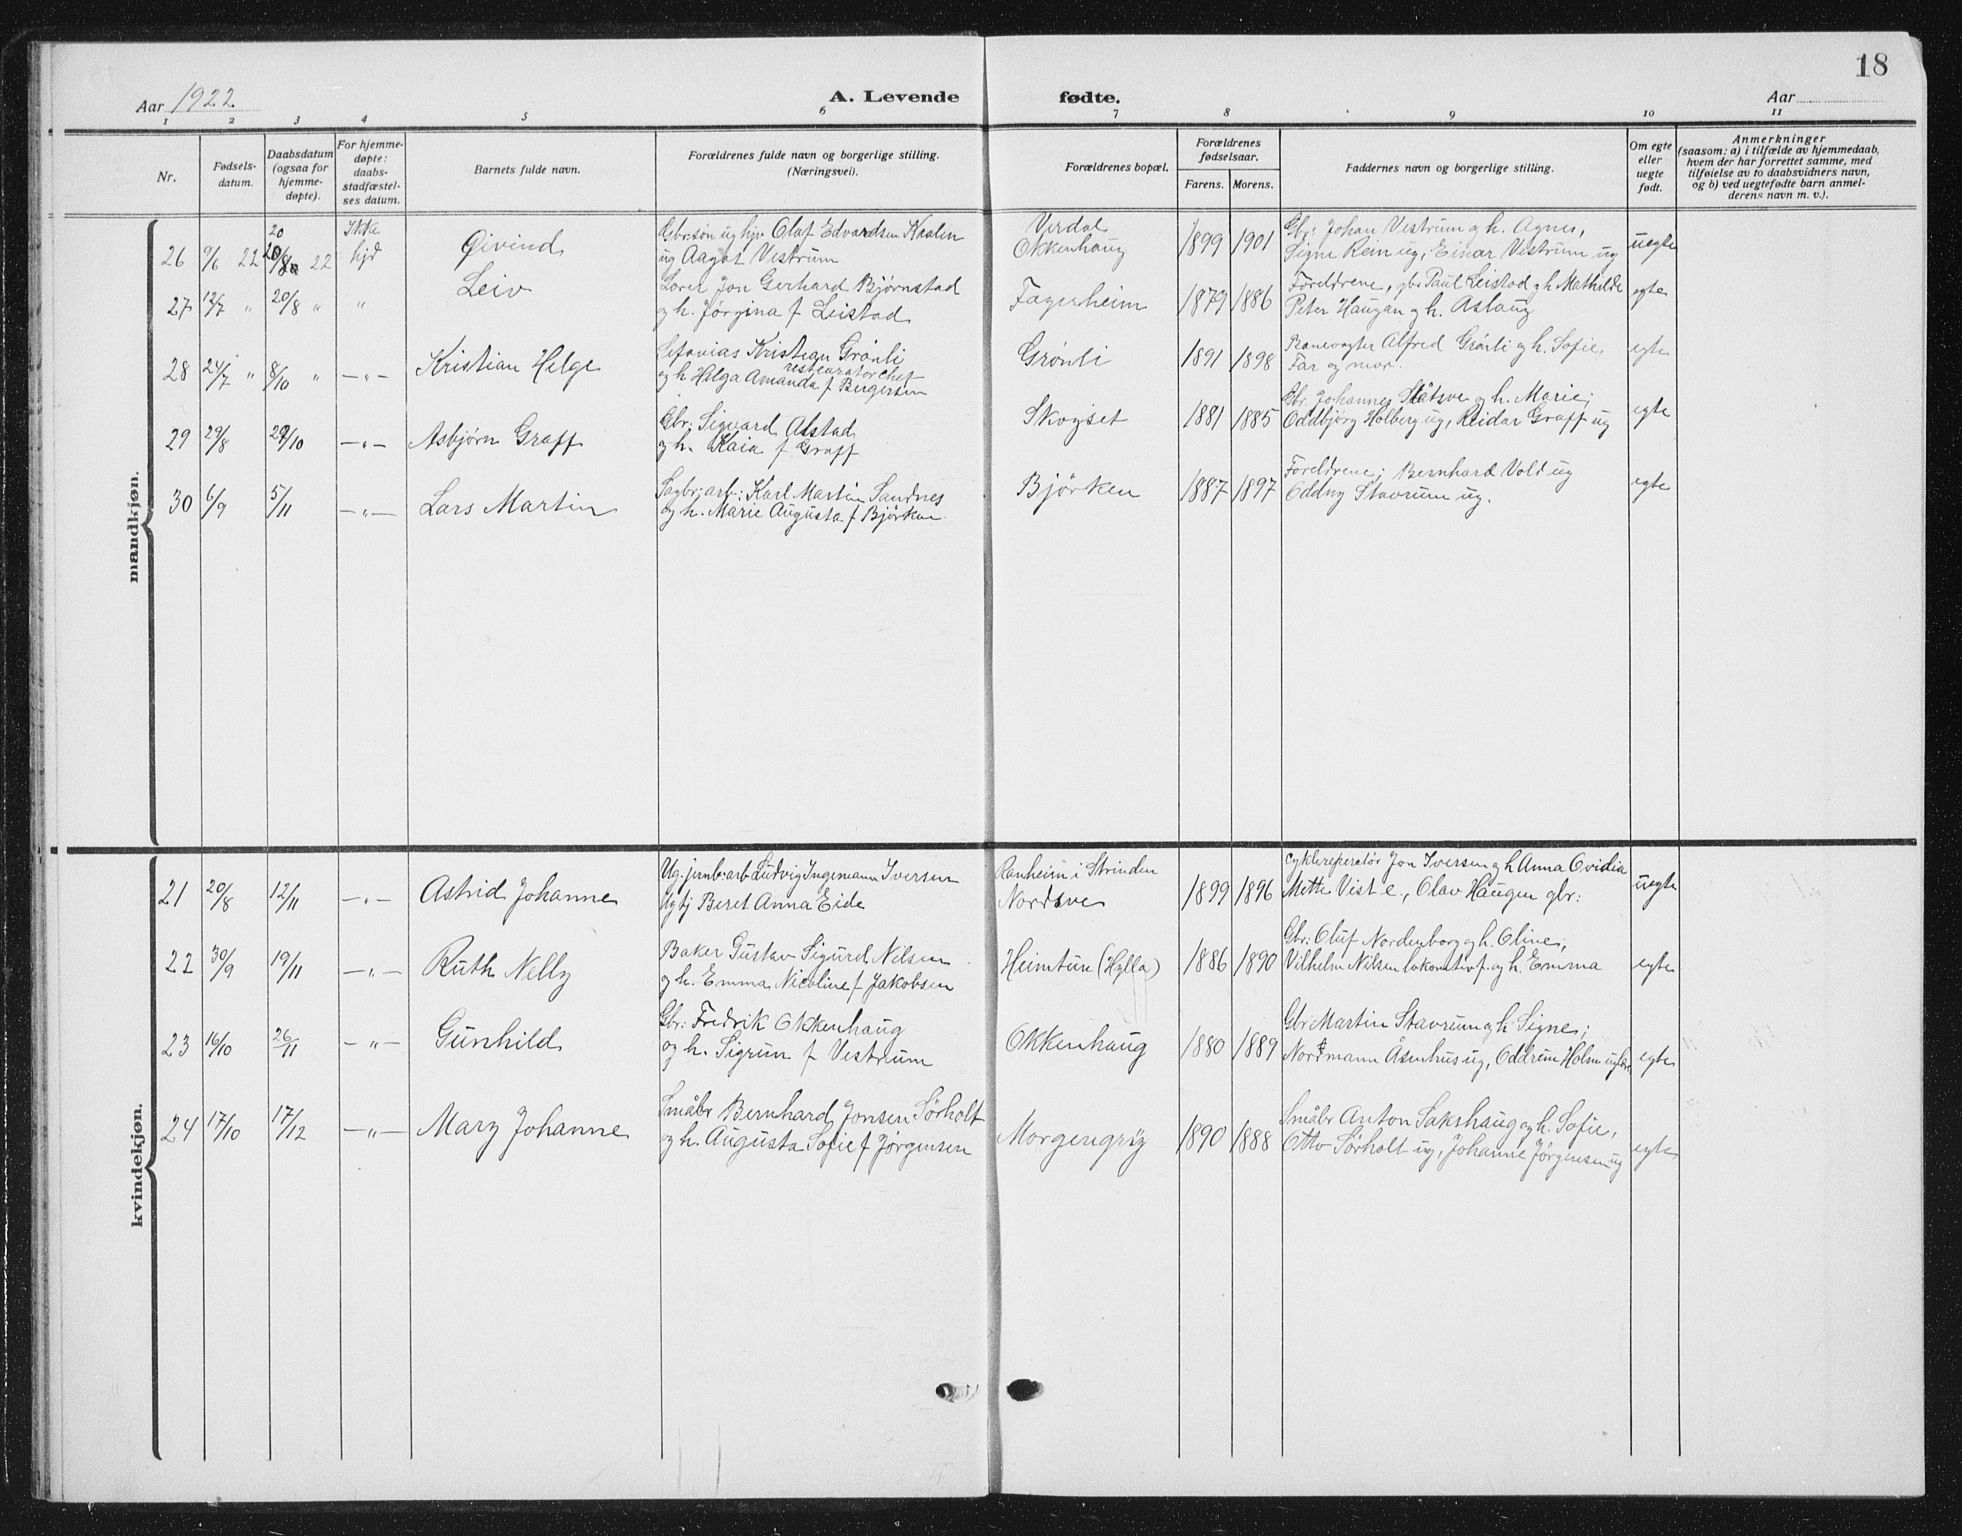 18
Aar 1922
A. Levende fødte.
Aar
1 2 3 4 5 6 7 8 9 10 11
Nr.
Fødsels-
datum.
Daabsdatum
(ogsaa for
hjemme-
døpte).
For hjemme-
døpte:
daabs-
stadfæstel-
ses datum.
Barnets fulde navn.
Forældrenes fulde navn og borgerlige stilling.
(Næringsvei).
Forældrenes bopæl.
Forældrenes
fødselsaar.
Farens. Morens.
Faddernes navn og borgerlige stilling.
Om egte
eller
uegte
født.
Anmerkninger
(saasom: a) i tilfælde av hjemmedaab,
hvem der har forrettet samme, med
tilføielse av to daabsvidners navn,
og b) ved uegtefødte barn anmel-
derens navn m. v.).
mandkjøn.
26 9/6 22 20/8 22 Ikke hjd Øivind
Gbr:søn ug hjv Olaf Edvardsen Kaalen
ug Aagot Vestrum
Verdal
Okkenhaug
1899 1901
Gbr: Johan Vestrum og h. Agnes,
Signe Rein ug, Einar Vestrum ug
uegte
27 12/7 " 20/8 " " Leiv
Lærer Jon Gerhard Bjørnstad
og h. Jørgina f Leistad
Fagerheim
1879 1886
Foreldrene, gbr Paul Leistad og h Mathilde
Peter Haugan og h. Aslaug
egte
28 24/7 " 8/10 " —"— Kristian Helge
Kristian Grønli
restauratørchef
og h Helga Amanda f Bergersen
Grønli
1891 1898
Banevogter Alfred Grønli og h. Sofie,
Far og mor.
egte
29 29/8 29/10 —"— Asbjørn Graff
Gbr: Sigvard Alstad
og h. Kaia f Graff
Skogset
1881 1885
Gbr. Johannes Slåtsve og h. Marie;
Oddbjørg Holberg ug, Reidar Graff ug
egte
30 6/9 5/11 —"— Lars Martin
Sagbr:arb: Karl Martin Sandnes
og h. Marie Augusta f Bjørken
Bjørken
1887 1897
Foreldrene; Bernhard Vold ug
Oddny Stavrum ug.
egte
kvindekjøn.
21 20/8 12/11 —"— Astrid Johanne
Ug. jernb:arb Ludvig Ingemann Iversen
Ug tj Beret Anna Eide
Ranheim i Strinden
Nordsve
1899 1896
Cyklereperatør Jon Iversen og h Anna Ovidia
Mette Viste, Olav Haugen gbr:
uegte
22 30/9 19/11 —"— Ruth Nelly
Baker Gustav Sigurd Nilsen
og h. Emma Nicoline f Jakobsen
Heimtun (Hylla)
1886 1890
Gbr: Oluf Nordenborg og h. Oline;
Vilhelm Nilsen lokomotivf. og h. Emma
egte
23 16/10 26/11 —"— Gunhild
Gbr: Fredrik Okkenhaug
og h. Sigrun f Vestrum
Okkenhaug
1880 1889
Gbr Martin Stavrum og h Signe;
Nordmann Åsenhus ug, Oddrun Holmen
egte
24 17/10 17/12 —"— Mary Johanne
Småbr Bernhard Jonsen Sørholt
og h. Augusta Sofie f Jørgensen
Morgengry
1890 1888
Småbr Anton Sakshaug og h. Sofie,
Otto Sørholt ug, Johanne Jørgensen ug
egte